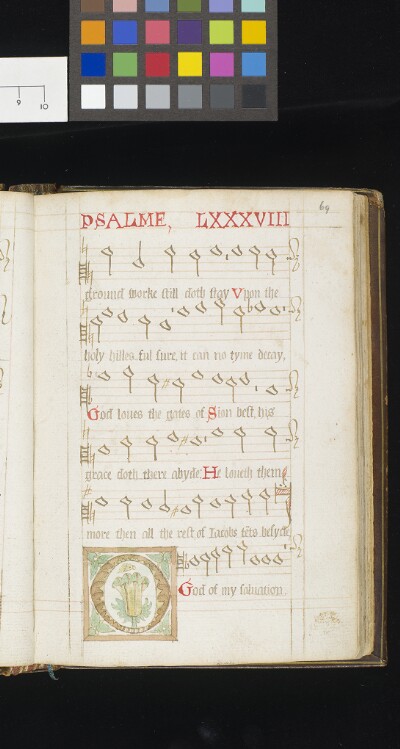 9 10
69
PSALME, LXXXVIII
ground worke still doth stay Vpon the
holy hilles ful sure, it can no tyme decay,
God loues the gates of Sion best, his
grace doth there abyde: He loueth them
more then all the rest of Iacobs tẽts besyde
God of my saluation.